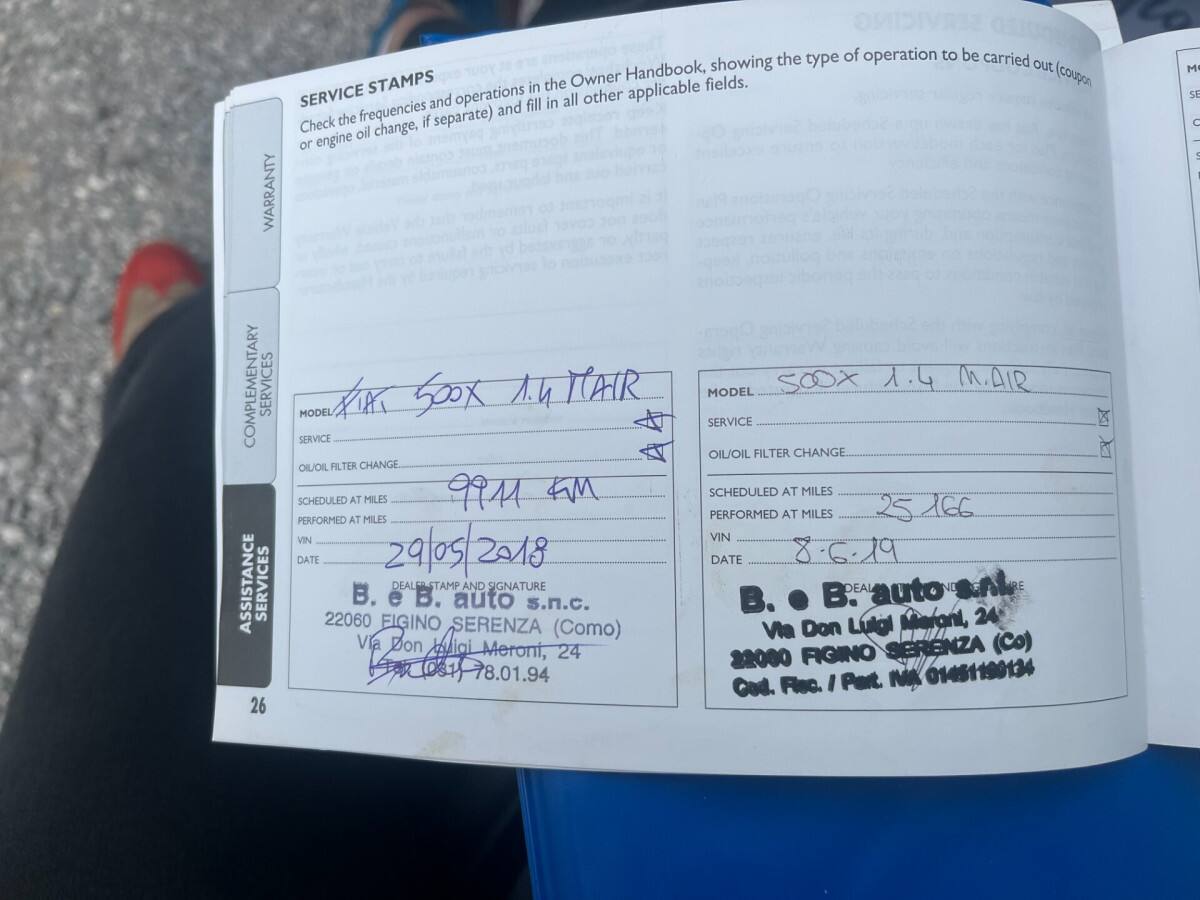 SERVICE STAMPS
Check the frequencies and operations in the Owner Handbook, showing the type of operation to be carried out (coupon
or engine oil change, if separate) and fill in all other applicable fields.
WARRANTY
COMPLEMENTARY
SERVICES
ASSISTANCE
SERVICES
MODEL 500X 1.4 MAIR
SERVICE
OIL/OIL FILTER CHANGE
SCHEDULED AT MILES 9911 KM
PERFORMED AT MILES
VIN
DATE 29/05/2018
DEALER STAMP AND SIGNATURE
B. e B. auto s.n.c.
22060 FIGINO SERENZA (Como)
Via Don Luigi Meroni, 24
78.01.94
26
MODEL 500X 1.4 M.AIR
SERVICE
OIL/OIL FILTER CHANGE
SCHEDULED AT MILES
PERFORMED AT MILES 25166
VIN
DATE 8.6.19
B. e B. auto s.n.
Via Don Luigi Meroni, 24
22060 FIGINO SERENZA (Co)
Cod. Fisc. / Part. IVA